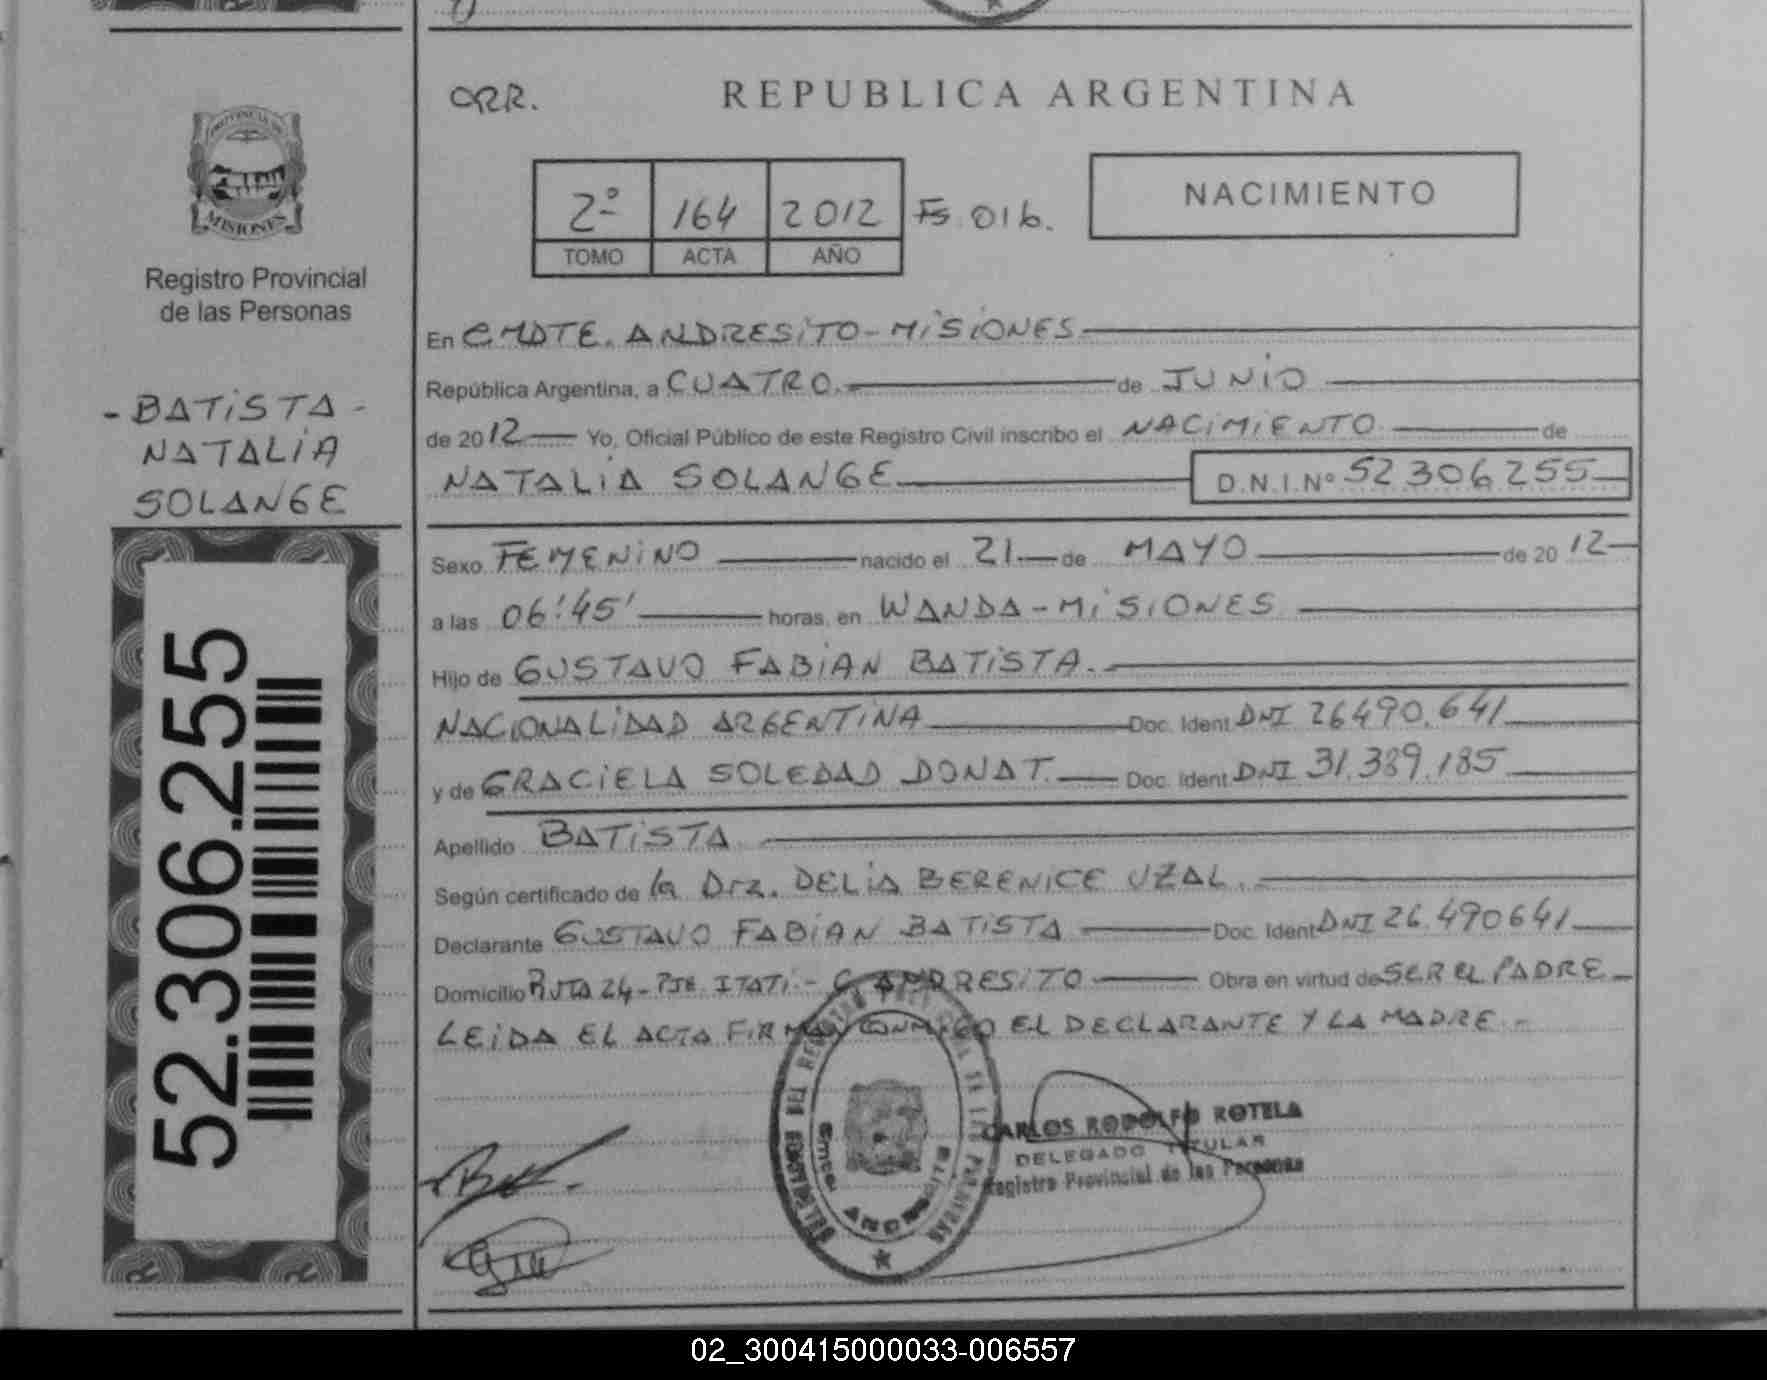 ORR.
REPUBLICA ARGENTINA
PROVINCIA DE
MISIONES
Registro Provincial
de las Personas
- BATISTA -
NATALIA
SOLANGE
52.306.255
2º 164 2012 Fs. 016.
TOMO ACTA AÑO
NACIMIENTO
En CMDTE. ANDRESITO - MISIONES
República Argentina, a CUATRO. de JUNIO
de 2012 Yo, Oficial Público de este Registro Civil inscribo el NACIMIENTO de
NATALIA SOLANGE D.N.I.Nº 52 306 255
Sexo FEMENINO nacido el 21 de MAYO de 20 12
a las 06:45' horas, en WANDA - MISIONES
Hijo de GUSTAVO FABIAN BATISTA.
NACIONALIDAD ARGENTINA Doc. Ident DNI 26490.641
y de GRACIELA SOLEDAD DONAT. Doc. Ident DNI 31.339.185
Apellido BATISTA
Según certificado de la Dra. DELIA BERENICE UZAL.
Declarante GUSTAVO FABIAN BATISTA Doc. Ident DNI 26.490641
Domicilio RUTA 24 - PJE. ITATI - C. ANDRESITO Obra en virtud de SER EL PADRE
LEIDA EL ACTA FIRMAN CONMIGO EL DECLARANTE Y LA MADRE -
CARLOS RODOLFO ROTELA
DELEGADO TITULAR
Registro Provincial de las Personas
02_300415000033-006557